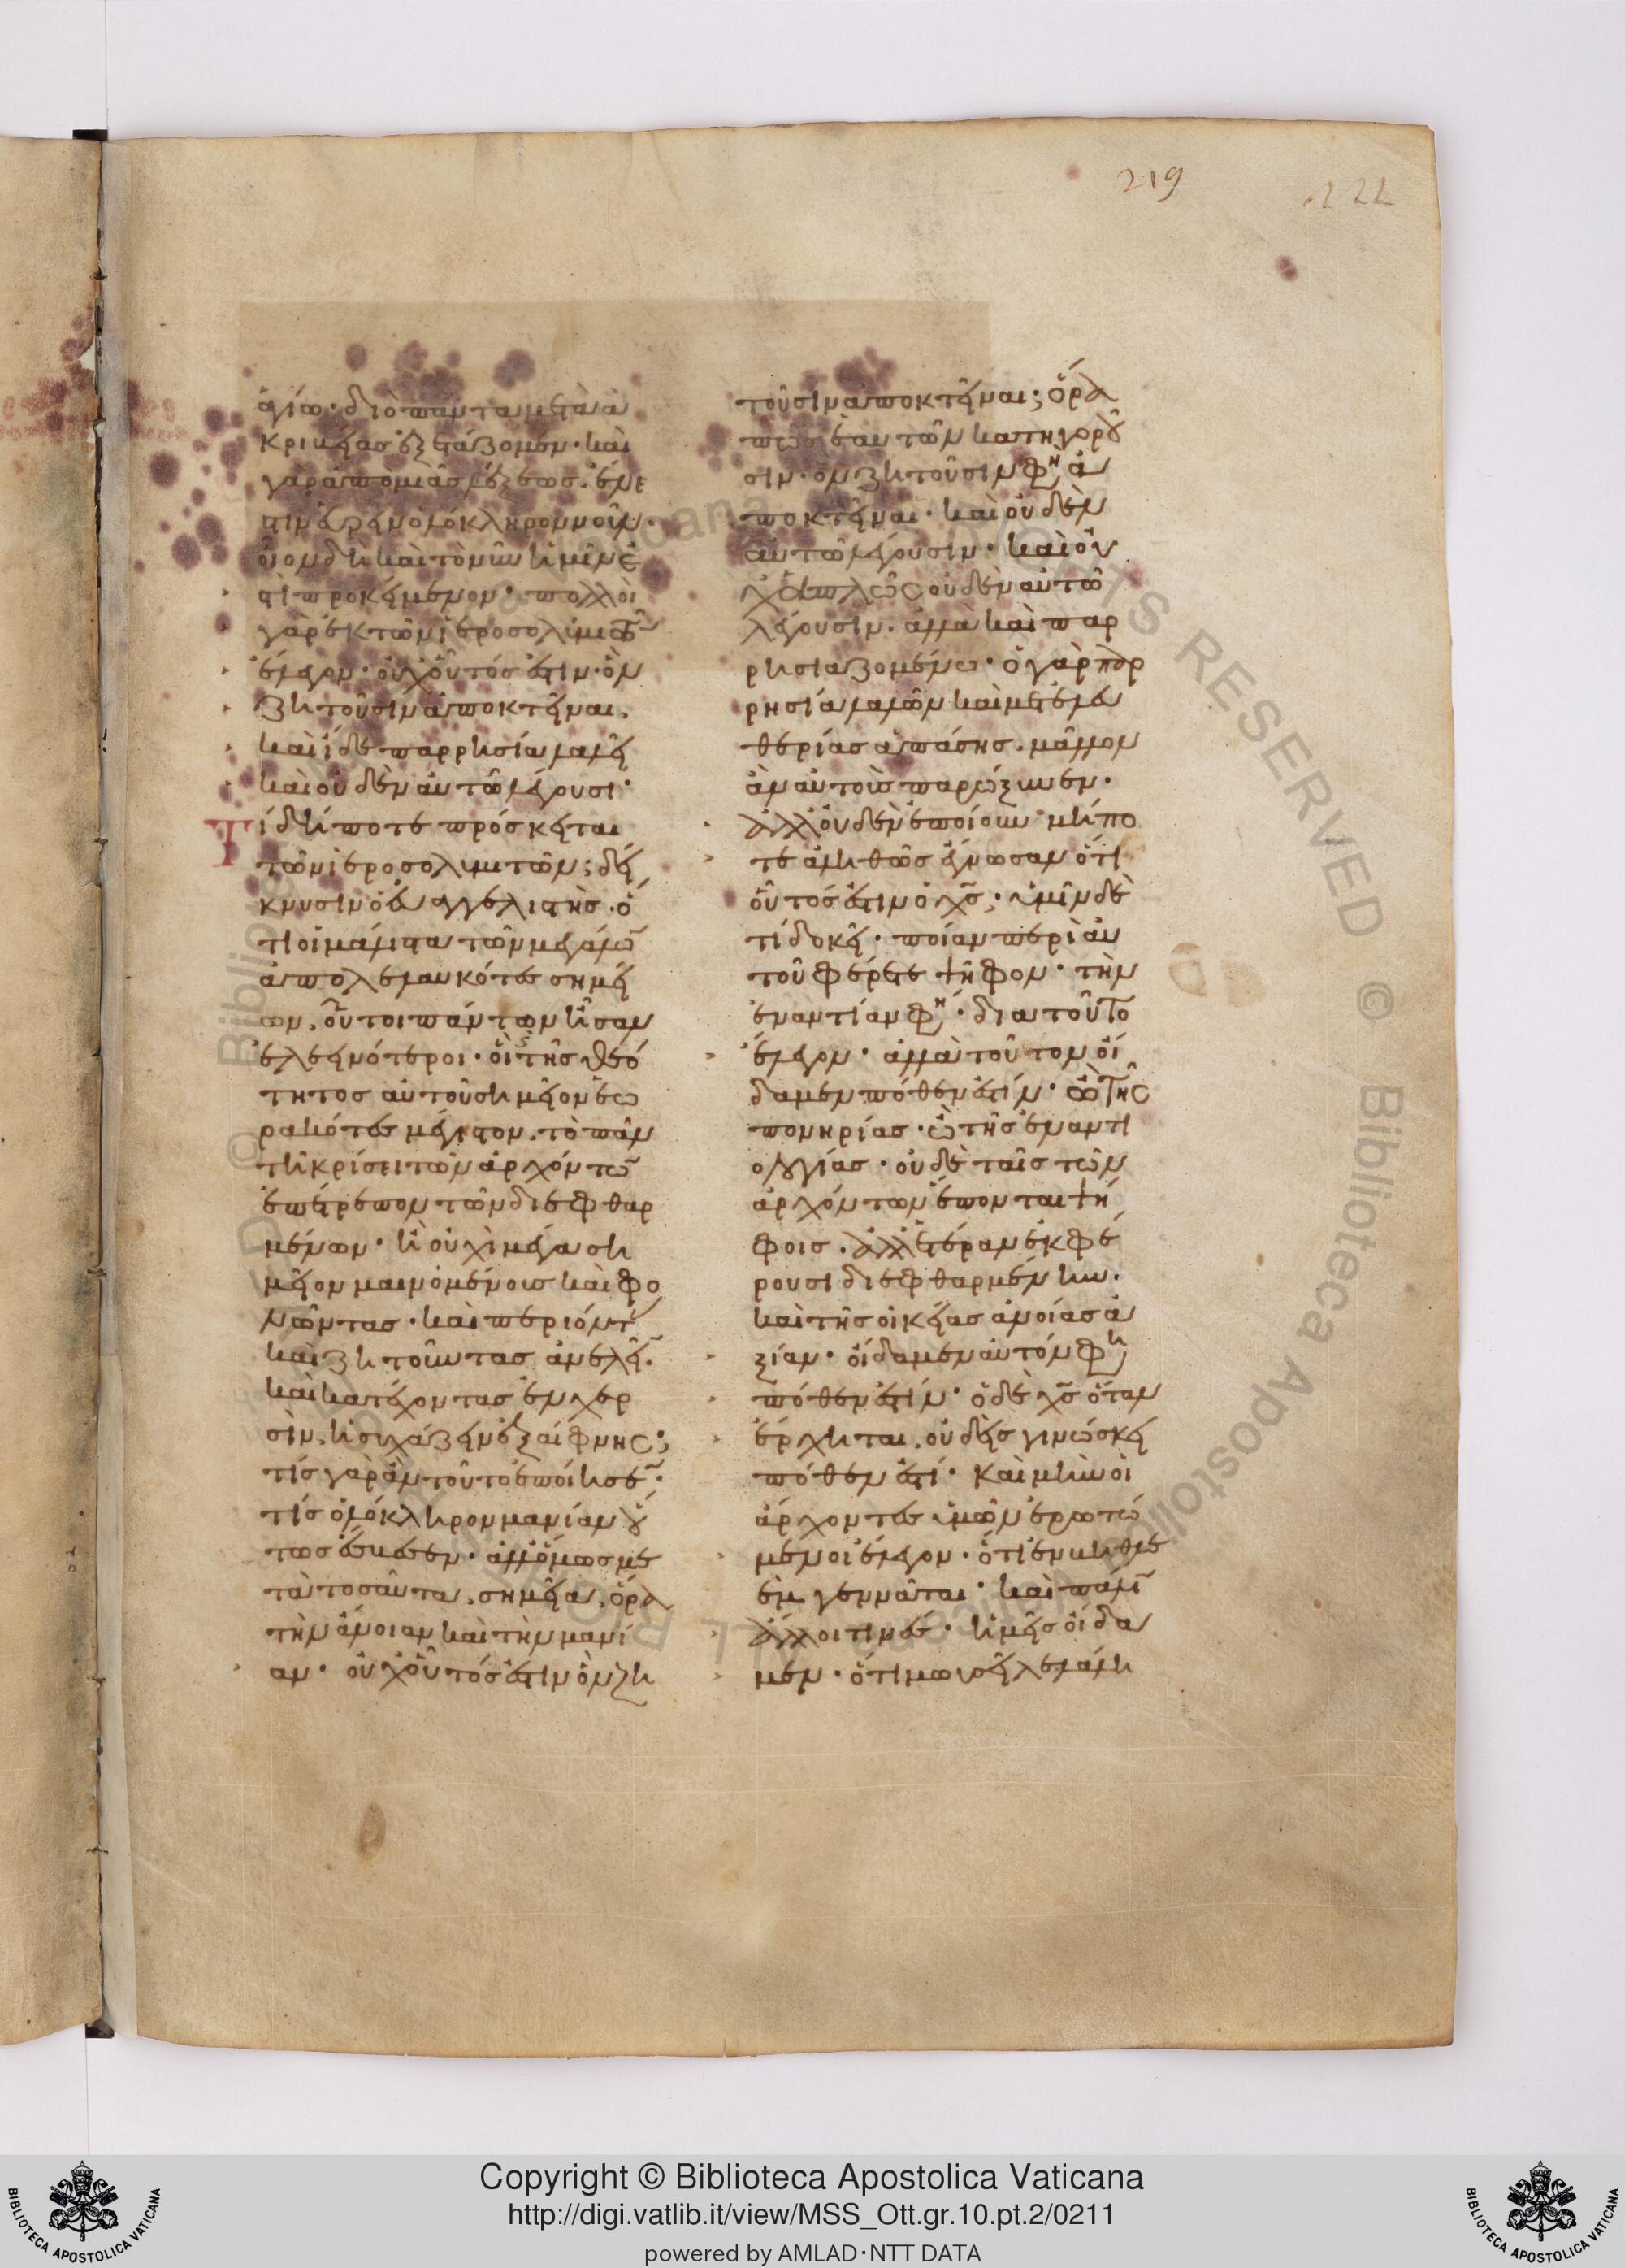 219
222
ἁγίω· διὸ πάντα μετὰ ἀ
κριβείας ἐξετάζομεν· καὶ
γὰρ ἀπὸ μιᾶς λέξεως. ἔνε
στιν εὑρεῖν ὁλόκληρον νοῦν.
οἷον δὴ καὶ τὸ νῦν ἡμῖν ἐ
στὶ προκείμενον· πολλοὶ
γὰρ ἐκ τῶν ἱεροσολυμιτῶν
ἔλεγον· οὐχ οὗτός ἐστιν· ὃν
ζητοῦσιν ἀποκτεῖναι.
καὶ ἴδε παρρησία λαλεῖ
καὶ οὐδὲν αὐτῶ λέγουσι·
Τί δή ποτε πρόσκειται
τῶν ἱεροσολυμιτῶν; δεί
κνυσιν ὁ εὐαγγελιστὴς. ὅ
τι οἱ μάλιστα τῶν μεγάλων
ἀπολελαυκότες σημεί
ων. οὗτοι πάντων ἦσαν
ἐλεεινότεροι· οἱ τῆς θεό
τητος αὐτοῦ σημεῖον ἑω
ρακότες μέγιστον. τὸ πᾶν
τῆ κρίσει τῶν ἀρχόντων
ἐπέτρεπον τῶν διεφθαρ
μένων· ἢ οὐχὶ μέγα ση
μεῖον μαινομένους καὶ φο
νῶντας· καὶ περιόντας
καὶ ζητοῦντας ἀνελεῖν.
καὶ κατέχοντας ἐν χερ
σὶν. ἡσυχάζειν ἐξαίφνης;
τίς γὰρ ἂν τοῦτο ἐποίησεν·
τίς ὁλόκληρον μανίαν οὕ
τως ἔσβεσεν. ἀλλ' ὅμως με
τὰ τοσαῦτα. σημεῖα. ὅρα
τὴν ἄνοιαν καὶ τὴν μανί
αν· οὐχ οὗτός ἐστιν ὃν ζη
τοῦσιν ἀποκτεῖναι; ὅρα
πῶς ἑαυτῶν κατηγοροῦ
σιν. ὃν ζητοῦσιν φη ἀ
ποκτεῖναι· καὶ οὐδὲν
αὐτῶ λέγουσιν· καὶ οὐ
χ ἁπλῶς οὐδὲν αὐτῶ
λέγουσιν. ἀλλὰ καὶ παρ
ρησιαζομένω· ὁ γὰρ παρ
ρησία λαλῶν καὶ μετ' ἐλευ
θερίας ἁπάσης. μᾶλλον
ἂν αὐτοὺς παρώξυνεν.
ἀλλ' οὐδὲν ἐποίουν· μήπο
τε ἀληθῶς ἔγνωσαν ὅτι
οὗτός ἐστιν ὁ χς; ὑμῖν δὲ
τί δοκεῖ· ποίαν περὶ αὐ
τοῦ φέρετε ψῆφον· τὴν
ἐναντίαν φη· διὰ τοῦτο
ἔλεγον· ἀλλὰ τοῦτον οἴ
δαμεν πόθεν ἐστίν· ὢ τῆς
πονηρίας· ὢ τῆς ἐναντι
ολογίας· οὐδὲ ταῖς τῶν
ἀρχόντων ἕπονται ψή
φοις. ἀλλ' ἑτέραν ἐκφέ
ρουσι διεφθαρμένην.
καὶ τῆς οἰκείας ἀνοίας ἀ
ξίαν· οἴδαμεν αὐτόν φη
πόθεν ἐστίν· ὁ δὲ χς ὅταν
ἔρχηται. οὐδεὶς γινώσκει
πόθεν ἐστί· καὶ μὴν οἱ
ἄρχοντες ὑμῶν ἐρωτώ
μενοι ἔλεγον· ὅτι ἐν βηθλε
ὲμ γεννᾶται· καὶ πάλιν
ἄλλοι τινές· ἡμεῖς οἴδα
μεν· ὅτι μωυσεῖ λελάλη
Copyright © Biblioteca Apostolica Vaticana
http://digi.vatlib.it/view/MSS_Ott.gr.10.pt.2/0211
powered by AMLAD·NTT DATA